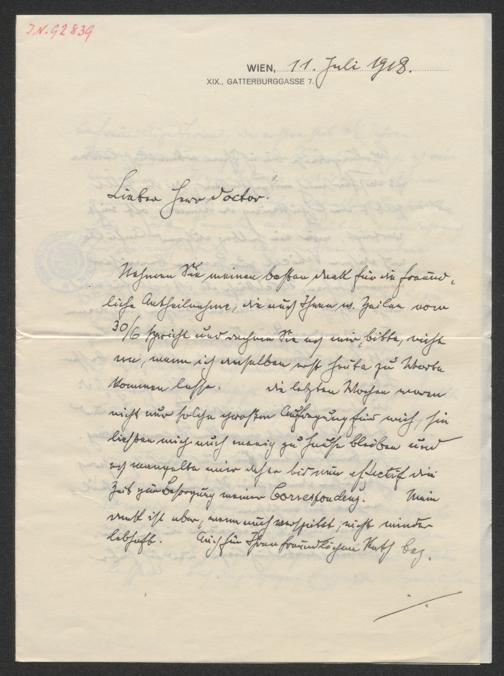 J.N. 92839
WIEN, 11. Juli 1918.
XIX., GATTERBURGGASSE 7.
Lieber Herr Doctor!
Nehmen Sie meinen besten Dank für die freund-
liche Antheilnahme, die aus Ihren w. Zeilen vom
30/6 spricht und rechnen Sie es mir, bitte, nicht
an, wenn ich denselben erst heute zu Worte
kommen lasse. Die letzten Wochen waren
nicht nur solche großer Aufregung für mich, sie
ließen mich auch wenig zu Hause bleiben und
es mangelte mir daher bis nun effectiv die
Zeit zur Besorgung meiner Correspondenz. Mein
Dank ist aber, wenn auch verspätet, nicht minder
lebhaft. Auch für Ihren freundlichen Rath bez.